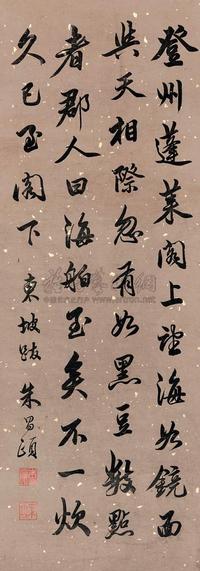 登州蓬莱阁上望海如镜面
与天相际忽有如黑豆数點
者郡人曰海舶至矣不一炊
久已至阁下 東坡跋 朱昌頤